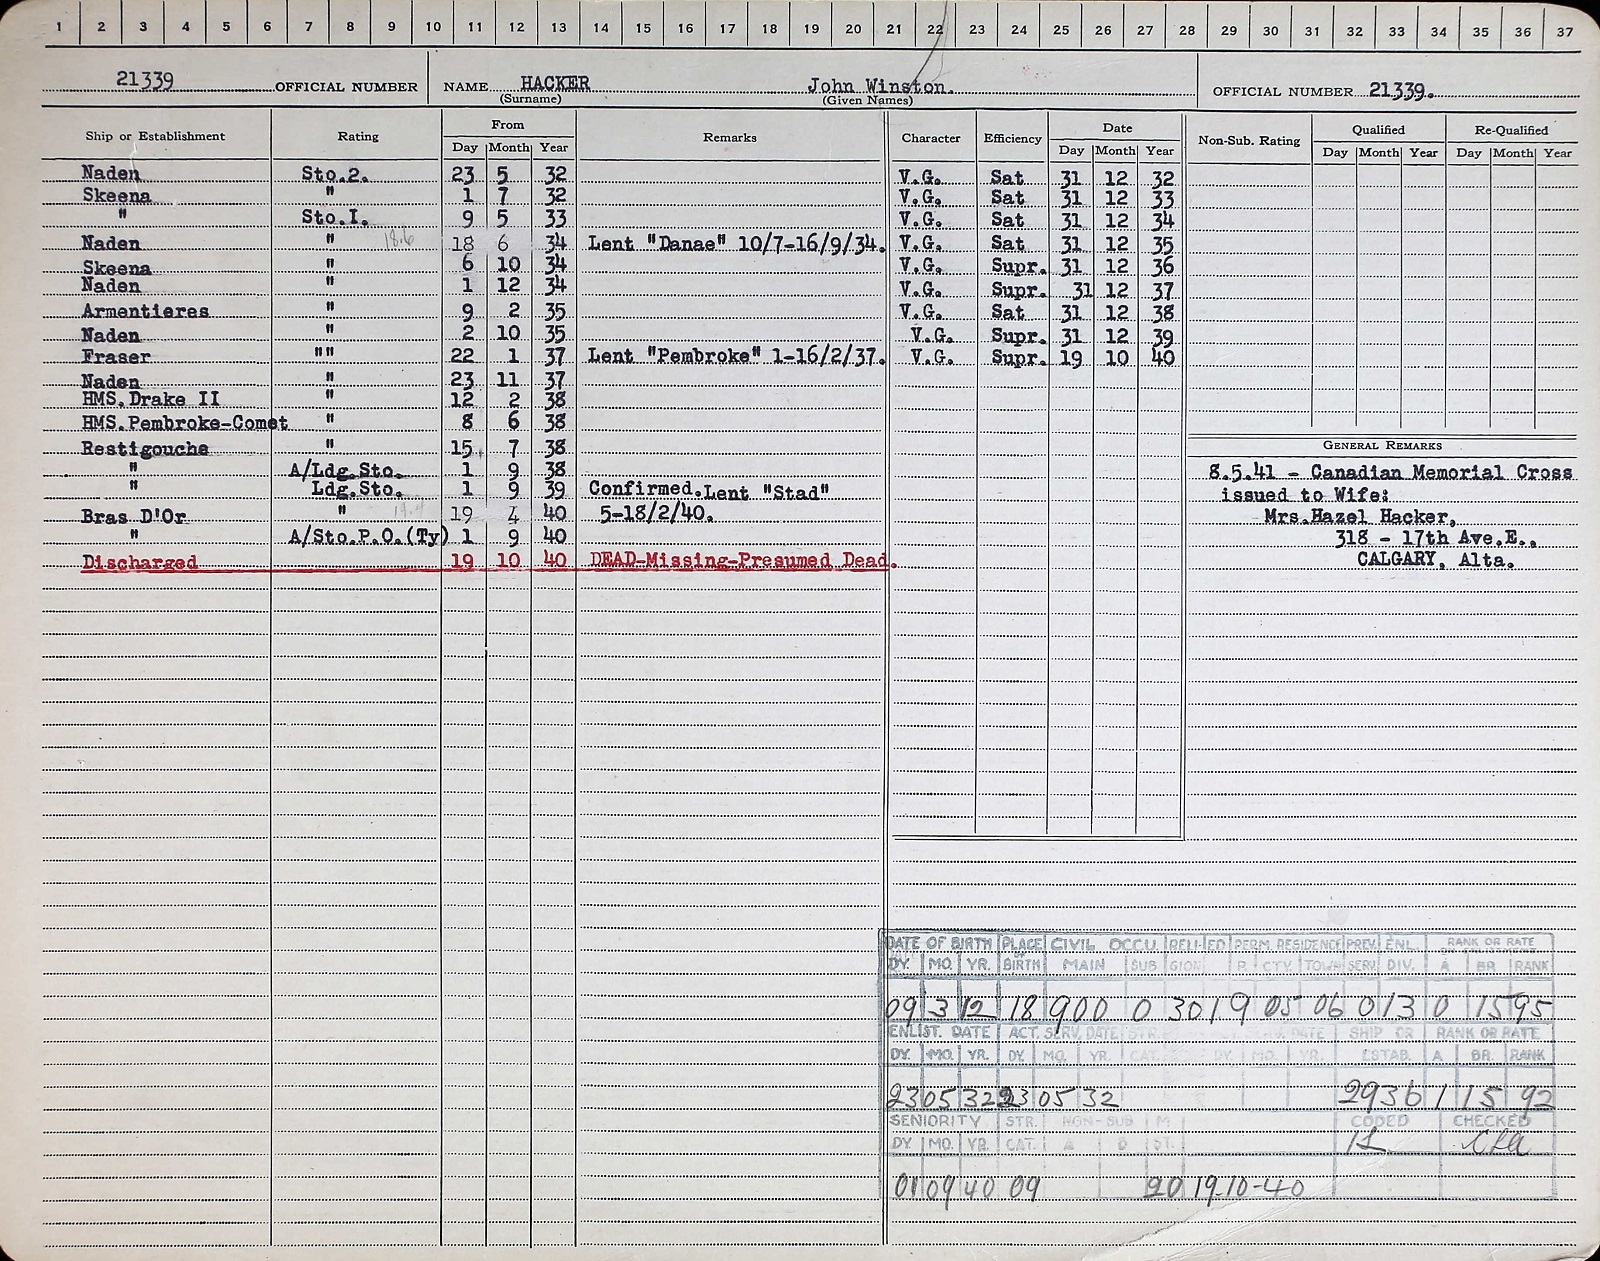 1 2 3 4 5 6 7 8 9 10 11 12 13 14 15 16 17 18 19 20 21 22 23 24 25 26 27 28 29 30 31 32 33 34 35 36 37
21339 OFFICIAL NUMBER NAME HACKER John Winston. OFFICIAL NUMBER 21339.
(Surname) (Given Names)
Ship or Establishment Rating From Remarks Character Efficiency Date Non-Sub. Rating Qualified Re-Qualified
Day Month Year Day Month Year Day Month Year Day Month Year
Naden Sto.2. 23 5 32 V.G. Sat 31 12 32
Skeena " 1 7 32 V.G. Sat 31 12 33
" Sto.I. 9 5 33 V.G. Sat 31 12 34
Naden " 18.6 18 6 34 Lent "Danae" 10/7-16/9/34. V.G. Sat 31 12 35
Skeena " 6 10 34 V.G. Supr. 31 12 36
Naden " 1 12 34 V.G. Supr. 31 12 37
Armentieres " 9 2 35 V.G. Sat 31 12 38
Naden " 2 10 35 V.G. Supr. 31 12 39
Fraser "" 22 1 37 Lent "Pembroke" 1-16/2/37. V.G. Supr. 19 10 40
Naden " 23 11 37
HMS. Drake II " 12 2 38
HMS. Pembroke-Comet " 8 6 38
Restigouche " 15 7 38
" A/Ldg.Sto. 1 9 38
" Ldg.Sto. 1 9 39 Confirmed. Lent "Stad"
Bras D'Or " 19.4 19 4 40 5-18/2/40.
" A/Sto.P.O.(Ty) 1 9 40
Discharged 19 10 40 DEAD-Missing-Presumed Dead.
GENERAL REMARKS
8.5.41 - Canadian Memorial Cross
issued to Wife:
Mrs.Hazel Hacker,
318 - 17th Ave.E.,
CALGARY, Alta.
DATE OF BIRTH PLACE OF BIRTH CIVIL OCCU. RELI-GION ED PERM. RESIDENCE PREV. SERV. ENL. DIV. RANK OR RATE
DY. MO. YR. MAIN SUB P. CTY. TOWN A BR. RANK
09 3 12 18 900 0 30 1 9 05 06 0 13 0 15 95
ENLIST. DATE ACT. SERV. DATE STR. DATE SHIP OR ESTAB. RANK OR RATE
DY. MO. YR. DY. MO. YR. CAT. DY. MO. YR. A BR. RANK
23 05 32 23 05 32 2936 1 15 92
SENIORITY STR. NON-SUB M CODED CHECKED
DY. MO. YR. CAT. A B ST.
01 09 40 09 20 19-10-40